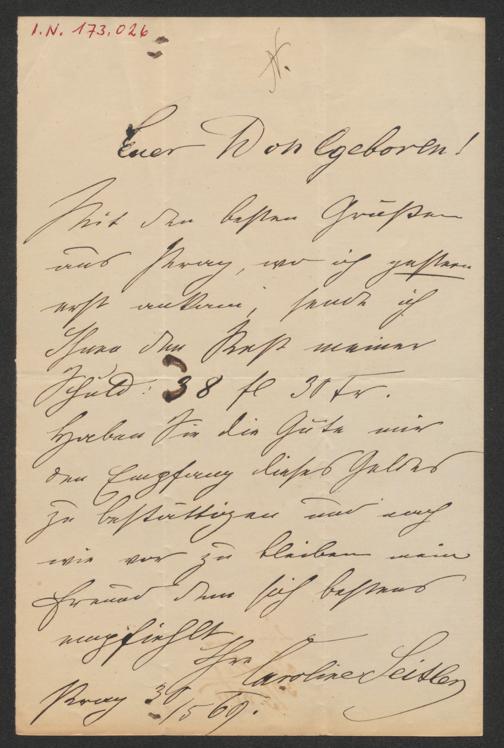 I.N. 173.026
A.
Euer Wohlgeboren!
Mit den besten Grüßen
aus Prag, wo ich gestern
erst ankam, sende ich
Ihnen den Rest meiner
Schuld: 38 fl 30 Kr.
Haben Sie die Güte mir
den Empfang dieses Geldes
zu bestättigen und nach
wie vor zu bleiben mein
Freund dem sich bestens
empfiehlt
Ihre Caroline Seitler
Prag 30/5 69.